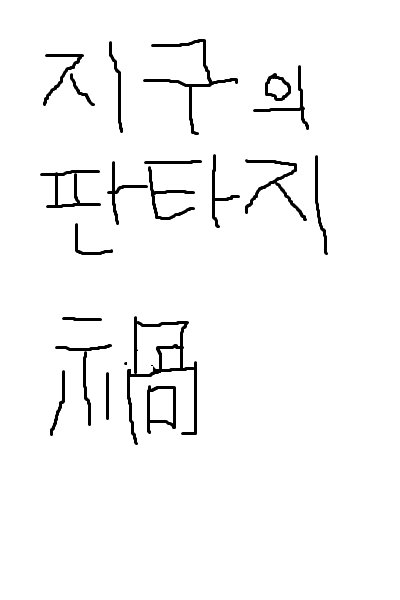 지구의
판타지
禍